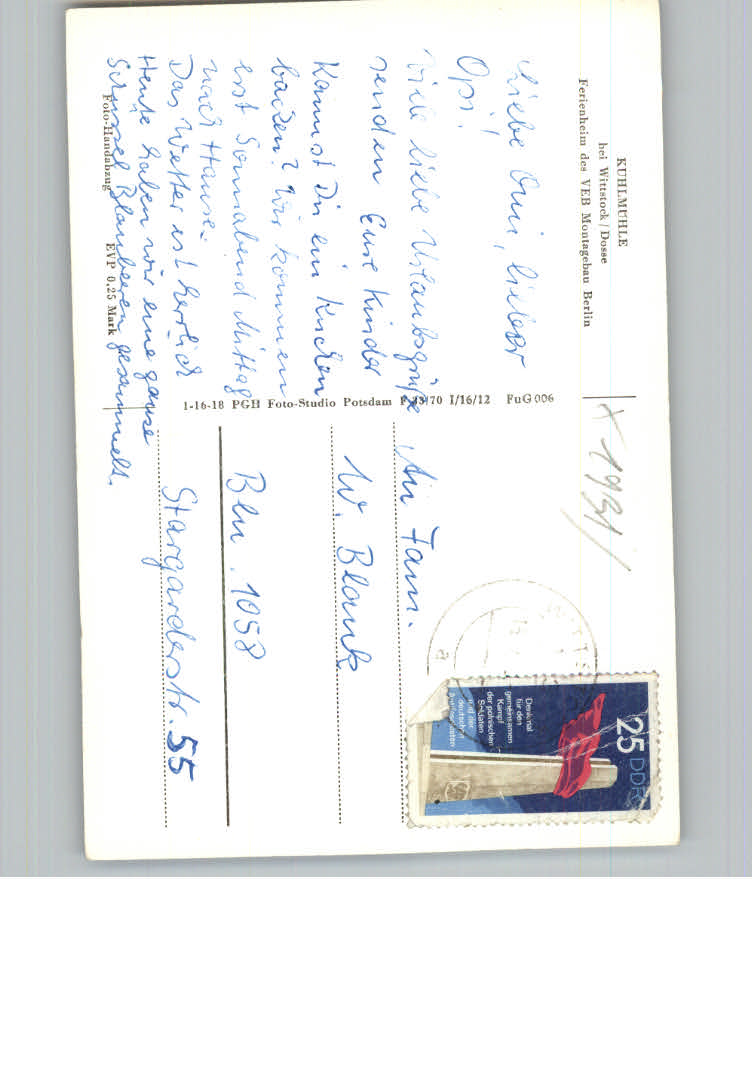 KUHLMÜHLE
bei Wittstock/Dosse
Ferienheim des VEB Montagebau Berlin
Liebe Omi, lieber
Opi!
viele liebe Urlaubsgrüße
senden Eure Kinder
Kannst Du ein Kuchen
backen? Wir kommen
erst Sonnabend Mittag
nach Hause.
Das Wetter ist herrlich
Heute haben wir eine ganze
Schüssel Blaubeeren gesammelt.
Foto-Handabzug EVP 0.25 Mark
1-16-18 PGH Foto-Studio Potsdam P 43/70 I/16/12 FuG 006
X 1931/
An Fam.
W. Blank
Bln. 1058
Stargarderstr. 55
25 DDR
Denkmal
für den
gemeinsamen
Kampf
der polnischen
Soldaten
und der
deutschen
Antifaschisten
a